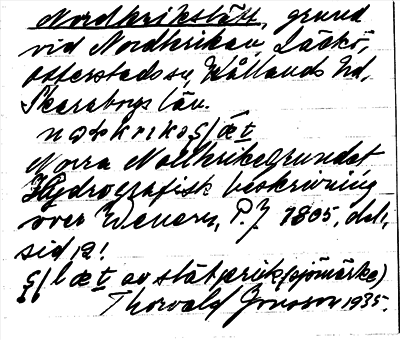 Nordkrikslätt, grund
vid Nordkriken, Läckö,
Otterstads sn, Kållands hd,
Skaraborgs län.
Norra Nollkrikegrundet
Hydrografisk beskrivning
över Wenern, P. J 1805, del,
sid 12!
av stätprik (sjömärke)
Thorvald Jonsson 1935.